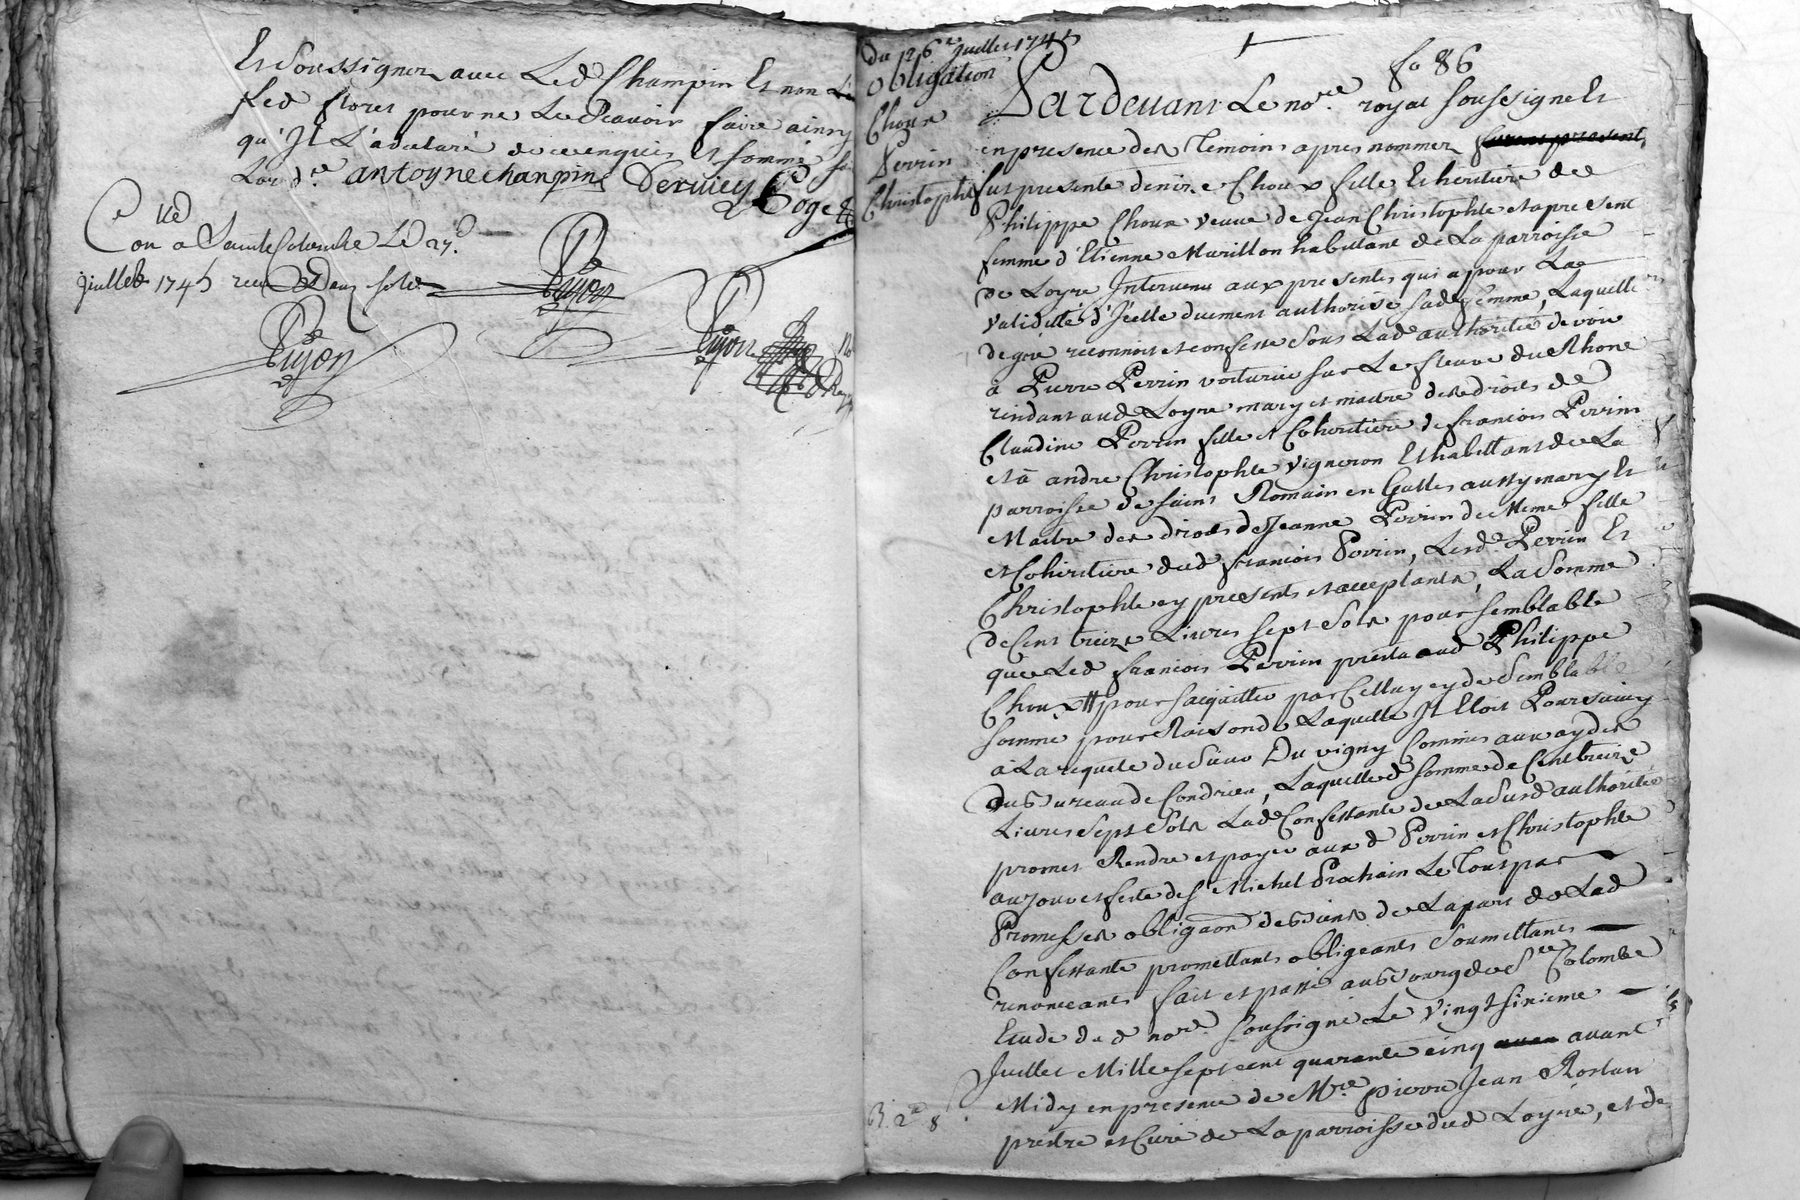 Et soussigner avec Led Champin Et non
Led flores pour ne Le Scavoir faire ainsy
qu'Jl L'a declaré de ce enquis et sommé
Lar d.e antoyne chanpin Dervieu Coget
C ueé
Con a Sainte Colombe Le 27.e
juillet 1745 receu deux sols
Pujon
Pujon
Pujon
Du 26.e juillet 1745
obligation
Choux
Perrin
Christophle
fo 86
Pardevant Le no.re royal soussigné Et
en presence des Temoins apres nommez furent present
fut presente denize Choux fille Et heritiere de
Philippe Choux veuve de Jean Christophle et a present
femme d'Etienne Murillon habitant de La parroisse
de Loyre Intervenu aux presentes qui a pour La
validitté d'Jcelle duement authorisé sad femme, Laquelle
de gré reconnoit et confesse sous Lad authorité devoir
à Pierre Perrin voiturier sur Le fleuve du Rhone
residant aud Loyre mary et maitre des droits de
Claudine Perrin fille et Coheritiere de francois Perrin
et à andre Christophle vigneron Et habittant de La
parroisse de saint Romain en Galles aussy mary Et
Maitre des droits de Jeanne Perrin de Meme fille
et Coheritiere dud francois Perrin, Lesd. Perrin Et
Christophle cy presents et acceptants, La somme
de Cent treize Livres sept Sols pour semblable
que Led francois Perrin presta aud Philippe
Choux pour sacquitter par Celluy cy de Semblable
somme pour Raison de Laquelle Jl Etoit Poursuivy
à La requete du Sieur Du vigny Commis aux aydes
du Bureau de Condrieu, Laquelle d somme de Cent treize
Livres Sept Sols Lad Confessante de La Susd authorité
promet Rendre et payer aux d Perrin et Christophle
au jour et feste de St Michel Prochain Le Tout par
Promesses obligaon de Biens de La part de Lad
Confessante promettants obligeants Soumettants
renonceants fait et passé au Bourg de Ste Colombe
Etude du d no.re soussigné Le vingt sixieme
Juillet Mille sept cent quarante cinq avant
Midy en presence de M.re pierre Jean Rostan
pretre et Curé de La parroisse dud Loyre, et de